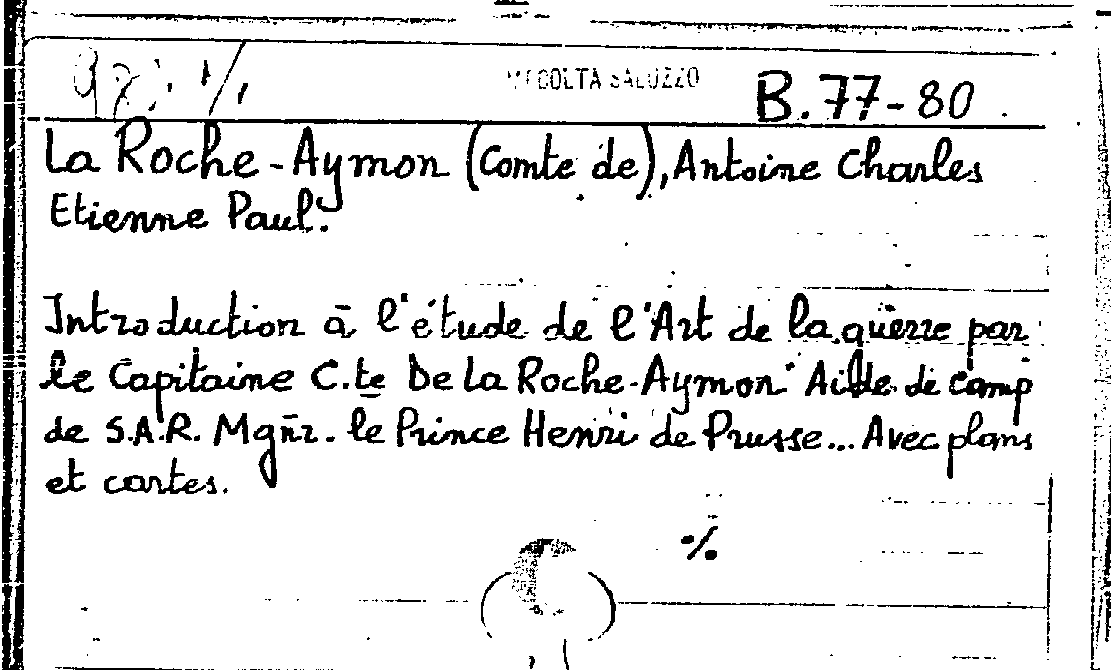 RACCOLTA SALUZZO B.77-80
La Roche-Aymon (Comte de), Antoine Charles
Etienne Paul.
Introduction à l'étude de l'Art de la guerre par
le Capitaine C.te De La Roche-Aymon Aide de camp
de S.A.R. Mgñr. le Prince Henri de Prusse... Avec plans
et cartes.
./.